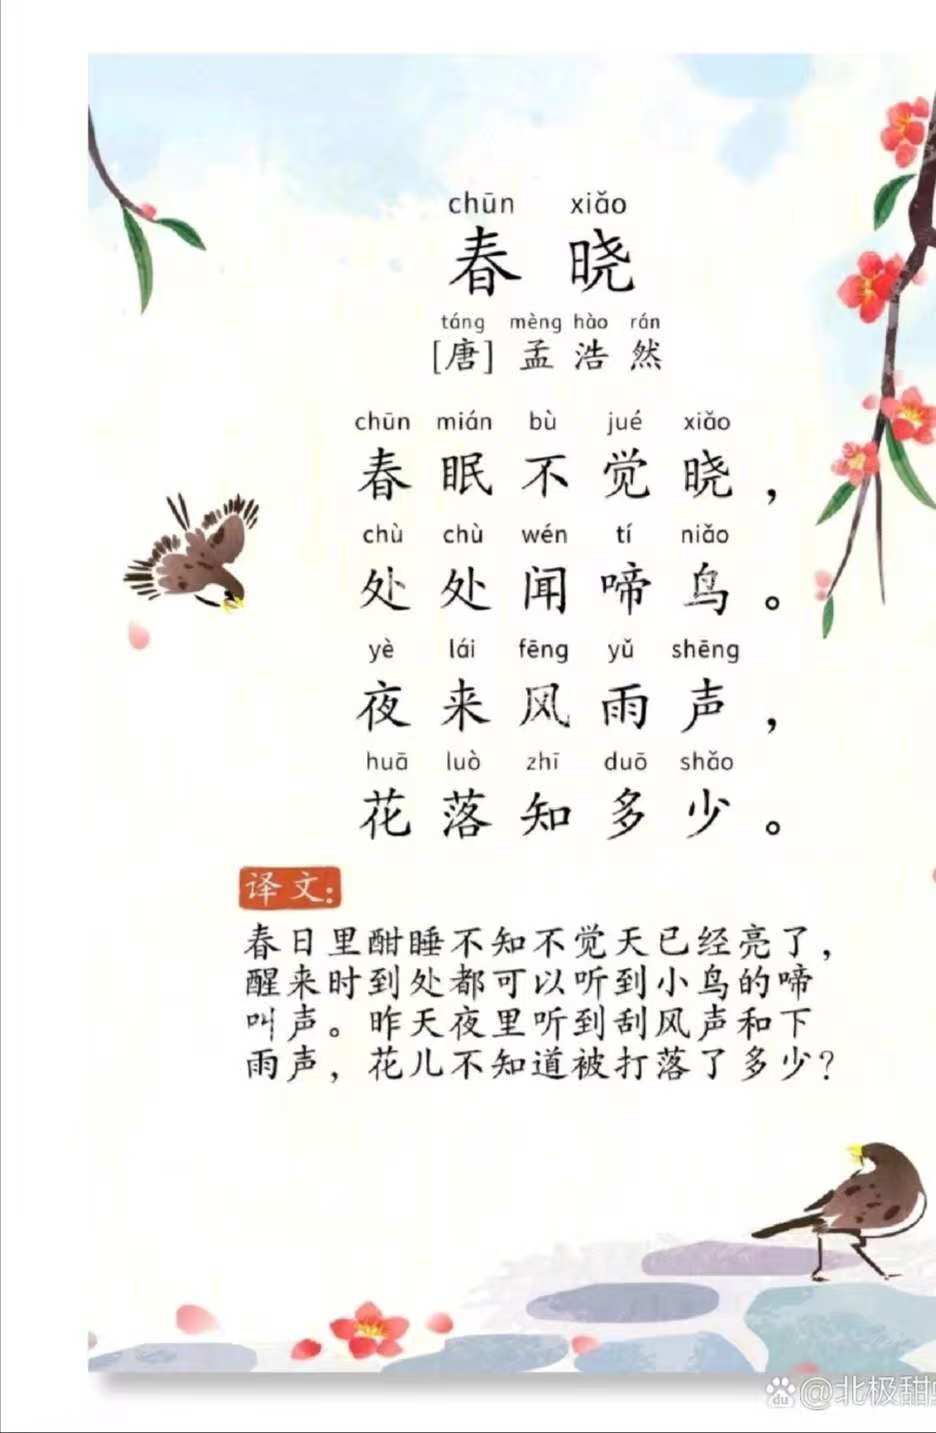 chūn xiǎo
春 晓
táng mèng hào rán
[唐] 孟 浩 然
chūn mián bù jué xiǎo
春 眠 不 觉 晓 ，
chù chù wén tí niǎo
处 处 闻 啼 鸟 。
yè lái fēng yǔ shēng
夜 来 风 雨 声 ，
huā luò zhī duō shǎo
花 落 知 多 少 。
译文：
春日里酣睡不知不觉天已经亮了，
醒来时到处都可以听到小鸟的啼
叫声。昨天夜里听到刮风声和下
雨声，花儿不知道被打落了多少？
du @北极甜